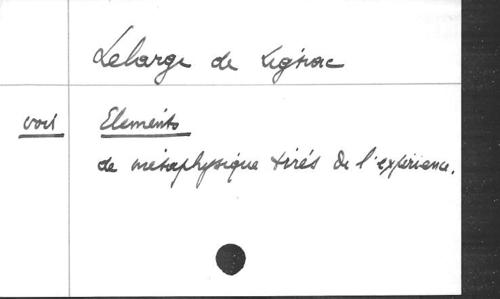 Lelarge de Lignac
voir Elements
de métaphysique tirés de l'expérience.